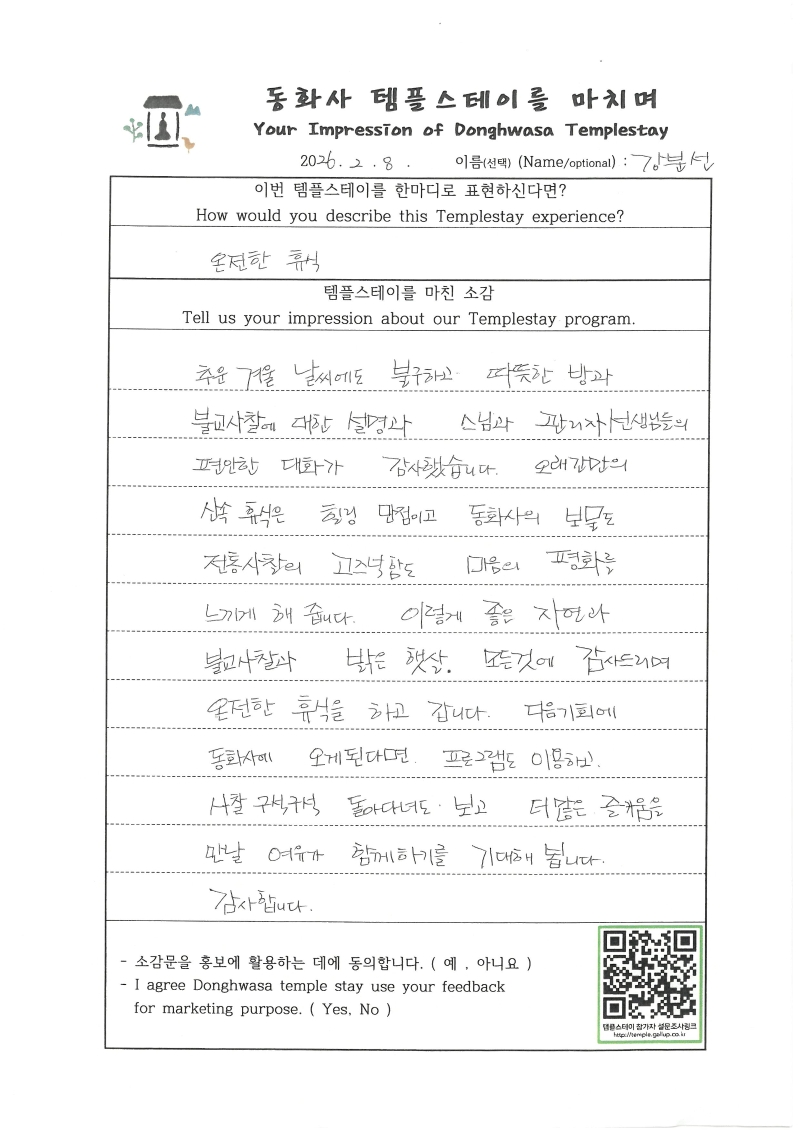 동화사 템플스테이를 마치며
Your Impression of Donghwasa Templestay
2026. 2. 8. 이름(선택) (Name/optional) : 강분선
이번 템플스테이를 한마디로 표현하신다면?
How would you describe this Templestay experience?
온전한 휴식
템플스테이를 마친 소감
Tell us your impression about our Templestay program.
추운 겨울 날씨에도 불구하고 따뜻한 방과
불교사찰에 대한 설명과 스님과 관리자선생님들의
편안한 대화가 감사했습니다. 오래간만의
산속 휴식은 힐링 만점이고 동화사의 보물도
전통사찰의 고즈넉함도 마음의 평화를
느끼게 해 줍니다. 이렇게 좋은 자연과
불교사찰과 밝은 햇살. 모든것에 감사드리며
온전한 휴식을 하고 갑니다. 다음기회에
동화사에 오게된다면. 프로그램도 이용하고.
사찰 구석구석 돌아다녀도 보고 더 많은 즐거움을
만날 여유가 함께하기를 기대해 봅니다.
감사합니다.
- 소감문을 홍보에 활용하는 데에 동의합니다. ( 예 , 아니요 )
- I agree Donghwasa temple stay use your feedback
for marketing purpose. ( Yes, No )
템플스테이 참가자 설문조사링크
http://temple.gallup.co.kr